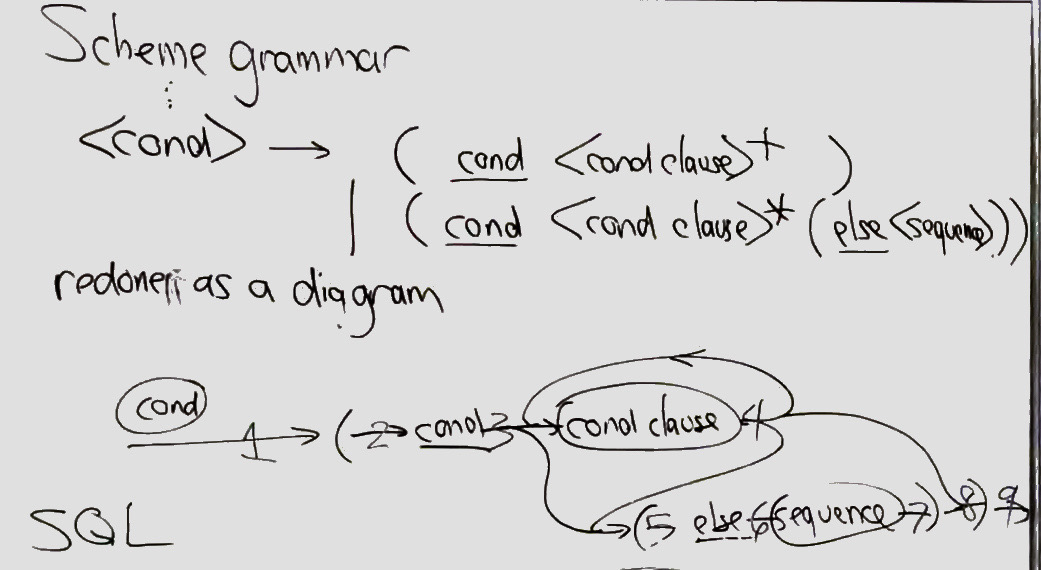 Scheme grammar
⋮
<cond> → ( cond <cond clause>+ )
| ( cond <cond clause>* (else <sequence>))
as a diagram
cond 1 ( 2 cond 3 cond clause 4
(5 else 6 sequence 7) 8) 9
SQL